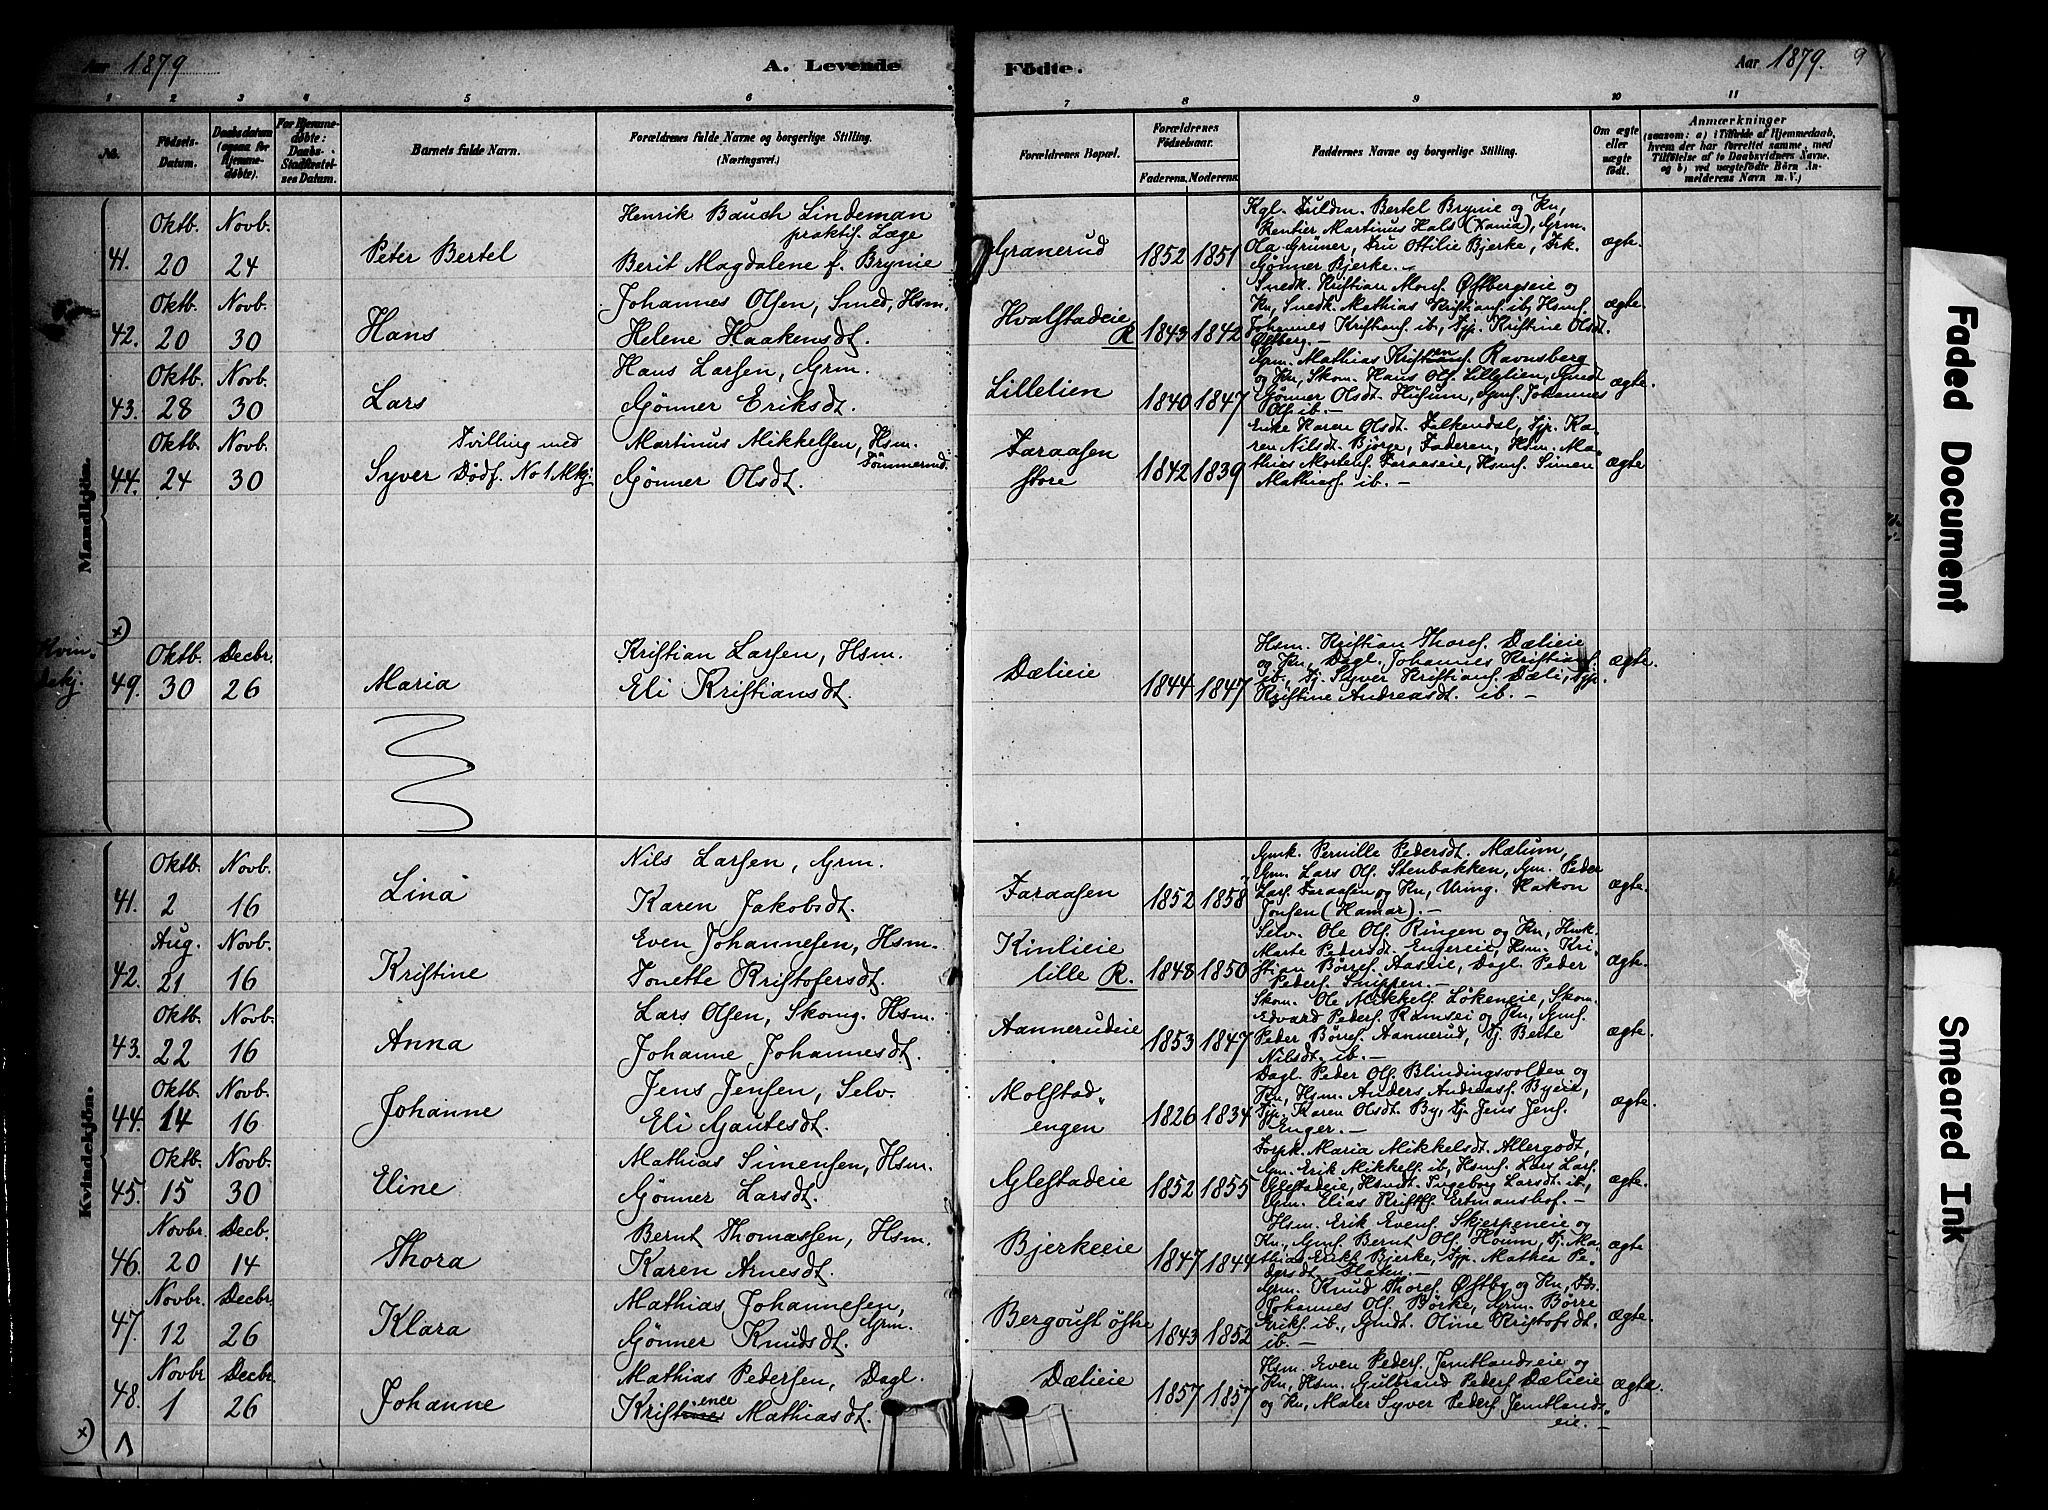 Aar 1879
A. Levende
Födte.
Aar 1879. 9
1 2 3 4 5 6 7 8 9 10 11
No.
Födsels-
Datum.
Daabsdatum
(ogsaa for
Hjemme-
døbte).
For Hjemme-
døbte:
Daabs-
Stadfæstel-
ses Datum.
Barnets fulde Navn.
Forældrenes fulde Navne og borgerlige Stilling.
(Næringsvei.)
Forældrenes Bopæl.
Forældrenes
Födselsaar.
Faderens. Moderens.
Faddernes Navne og borgerlige Stilling.
Om ægte
eller
uægte
født.
Anmærkninger
(saasom: a) i Tilfælde af Hjemmedaab,
hvem der har forrettet samme, med
Tilføielse af to Daabsvidners Navne,
og b) ved uægtefödte Börn An-
melderens Navn m. V.)
Mandkjön.
41.
Oktb. 20
Novb. 24
Peter Bertel
Henrik Bauch Lindeman
praktis. Læge
Berit Magdalene f. Brynie
Granerud
1852 1851
Kgl. Fuldm. Bertel Brynie og Kn,
Rentier Martinus Hals (Xania), Grm.
Ola Grüner, Fru Ottilie Bjerke, Frk.
Gønner Bjerke. -
ægte.
42.
Oktb. 20
Novb. 30
Hans
Johannes Olsen, Smed, Hsm.
Helene Haakensdt.
Hvalstadeie
R
1843 1842
Snedk. Kristian Mons. Østbergseie og
Kn, Snedk. Mathias Kristians. ib, Hsms.
Johannes Kristians. ib, Tjp. Kristine Olsdt.
Østberg. -
ægte.
43.
Oktb. 28
Novb. 30
Lars
Hans Larsen, Grm.
Gønner Eriksdt.
Lillelien
1840 1847
Grm. Mathias Kristens. Ravnsberg
og Kn, Skom. Hans Ols. Lillelien, Gmdt
Gønner Olsdt. Husum, Gms. Johannes
Ols. ib. -
ægte.
44.
Oktb. 24
Novb. 30
Tvilling med
Syver Dödf. No 1 Mkj.
Martinus Mikkelsen, Hsm.
Tømmermd.
Gønner Olsdt.
Faraasen
store
1842 1839
Enke Karen Olsdt. Falkendal, Tjp. Ka-
ren Nilsdt. Bjørge, Faderen, Hsm. Ma-
thias Mortens. Faraaseie, Hsms. Simen
Mathias. ib. -
ægte
x)
Kvin-
dekj.
49.
Oktb. 30
Decbr. 26
Maria
Kristian Larsen, Hsm.
Eli Kristiansdt.
Dælieie
1844 1847
Hsm. Kristian Thores. Dælieie
og Kn, Dagl. Johannes Kristians.
ib, Tj. Syver Kristians. Dæli, Tjp.
Kristine Andreasdt. ib. -
ægte.
Kvindekjön.
41.
Oktb. 2
Novb. 16
Lina
Nils Larsen, Grm.
Karen Jakobsdt.
Faraasen
1852 1858
Gmk. Pernille Pedersdt. Mælum,
Gm. Lars Ols. Stenbakken, Gm. Peder
Lars. Faraasen og Kn, Uring. Hakon
Jonsen (Hamar). -
ægte.
42.
Aug. 21
Novb. 16
Kristine
Even Johannesen, Hsm.
Tonette Kristofersdt.
Kinlieie
lille R.
1848 1850
Selv. Ole Ols. Ringen og Kn, Hsmk.
Marte Pedersdt. Engereie, Hsm. Kri-
stian Børres. Aaseie, Dagl. Peder
Peders. Snippen. -
ægte.
43.
Oktb. 22
Novb. 16
Anna
Lars Olsen, Skomg. Hsm.
Johanne Johannesdt.
Aannerudeie
1853 1847
Skom. Ole Mikkels. Løkeneie, Skom.
Edvard Peders. Ramsei og Kn, Gms.
Peder Børres. Aannerud, Tj. Berte
Nilsdt. ib. -
ægte.
44.
Oktb. 14
Novb. 16
Johanne
Jens Jensen, Selv.
Eli Gautesdt.
Molstad-
engen
1826 1834
Dagl. Peder Ols. Blindingsvolden og
Kn, Hsm. Anders Andreas. Byeie,
Tjp. Karen Olsdt. By, Tj. Jens Jens.
Enger. -
ægte.
45.
Oktb. 15
Novb. 30
Eline
Mathias Simensen, Hsm.
Gønner Larsdt.
Glestadeie
1852 1855
Forpk. Maria Mikkelsdt. Allergodt,
Gm. Erik Mikkels. ib, Hsms. Lars Lars.
Glestadeie, Hsmdt. Ingeborg Larsdt. ib,
Gm. Elias Kristofs. Ertmanshof. -
ægte.
46.
Novbr. 20
Decb. 14
Thora
Bernt Thomassen, Hsm.
Karen Arnesdt.
Bjerkeeie
1847 1844
Hsm. Erik Evens. Skjerpeneie og
Kn, Gms. Bernt Ols. Houm, Tj. Ma-
thias Eriks. Bjerke, Tjp. Mathia Pe-
dersdt. Flaten. -
ægte
47.
Novbr. 12
Decbr. 26
Klara
Mathias Johannesen,
Grm.
Gønner Knudsdt.
Bergoust östre
1843 1852
Grm. Knud Thores. Østby og Kn, Fds.
Johannes Ols. Børke, Grm. Børre
Eriks. ib., Gmdt. Oline Kristofsdt.
ib. -
ægte.
48.
Novbr. 1
Decbr. 26
Johanne
Mathias Pedersen, Dagl.
Kristence Mathiasdt.
Dælieie
1857 1857
Hsm. Even Peders. Jemtlandseie og
Kn, Hsm. Gulbrand Peders. Dælieie
og Kn, Maler Syver Peders. Jemtlands-
eie. -
ægte.
x)
Faded Document
Smeared Ink